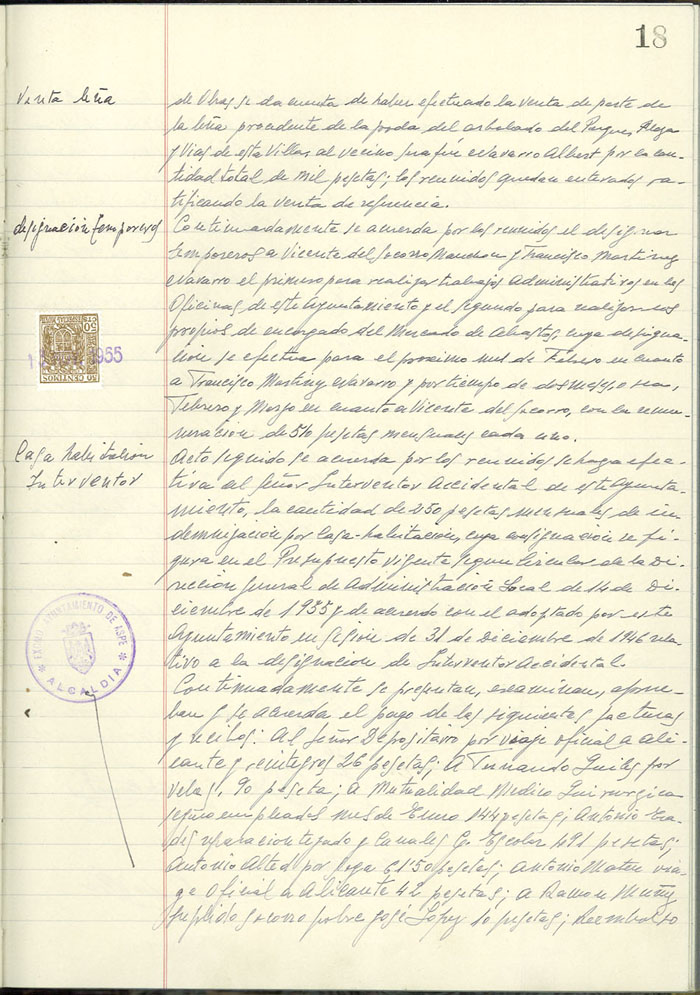 18
Venta leña
de Obras se da cuenta de haber efectuado la venta de parte de
la leña procedente de la poda del arbolado del Parque, Plaza
y Vias de esta Villa, al vecino Navarro Albert por la can-
tidad total de mil pesetas; los reunidos quedan enterados ra-
tificando la venta de referencia.
designación Temporeros
Continuadamente se acuerda por los reunidos el designar
temporeros a Vicente del Socorro Manchon y Francisco Martinez
Navarro el primero para realizar trabajos Administrativos en las
Oficinas de este Ayuntamiento y el segundo para realizar los
propios de encargado del Mercado de Abastos, cuya designa-
ción se efectua para el proximo mes de Febrero en cuanto
a Francisco Martinez Navarro y por tiempo de dos meses, o sea,
Febrero y Marzo en cuanto a Vicente del Socorro, con la remu-
neración de 510 pesetas mensuales cada uno.
50 CTS
50 CENTIMOS
1955
Casa habitación
Interventor
Acto seguido se acuerda por los reunidos se haga efec-
tiva al Señor Interventor Accidental de este Ayunta-
miento, la cantidad de 250 pesetas mensuales de in-
demnización por Casa-habitación, cuya consignación se fi-
gura en el Presupuesto vigente segun Circular de la Di-
rección General de Administración Local de 14 de Di-
ciembre de 1935 y de acuerdo con el adoptado por este
Ayuntamiento en Sesion de 31 de Diciembre de 1946 rela-
tivo a la designacion de Interventor Accidental.
EXCMO. AYUNTAMIENTO DE ASPE
* ALCALDIA *
Continuadamente se presentan, examinan, aprue-
ban y se acuerda el pago de las siguientes facturas
y recibos: Al Señor Depositario por viaje oficial a Ali-
cante y reintegros 26 pesetas; A Fernando Guilos por
velas, 90 peseta; a Mutualidad Medico Quirurgica
seguro empleados mes de Enero 144 pesetas; Antonio
reparacion tejado y Canales G. Escolar 491 pesetas;
Antonio Alted por 61'50 pesetas; Antonio Mateu via-
ge Oficial a Alicante 42 pesetas; a Ramon Muñoz
suplido socorro pobre José López 10 pesetas; Reembolso